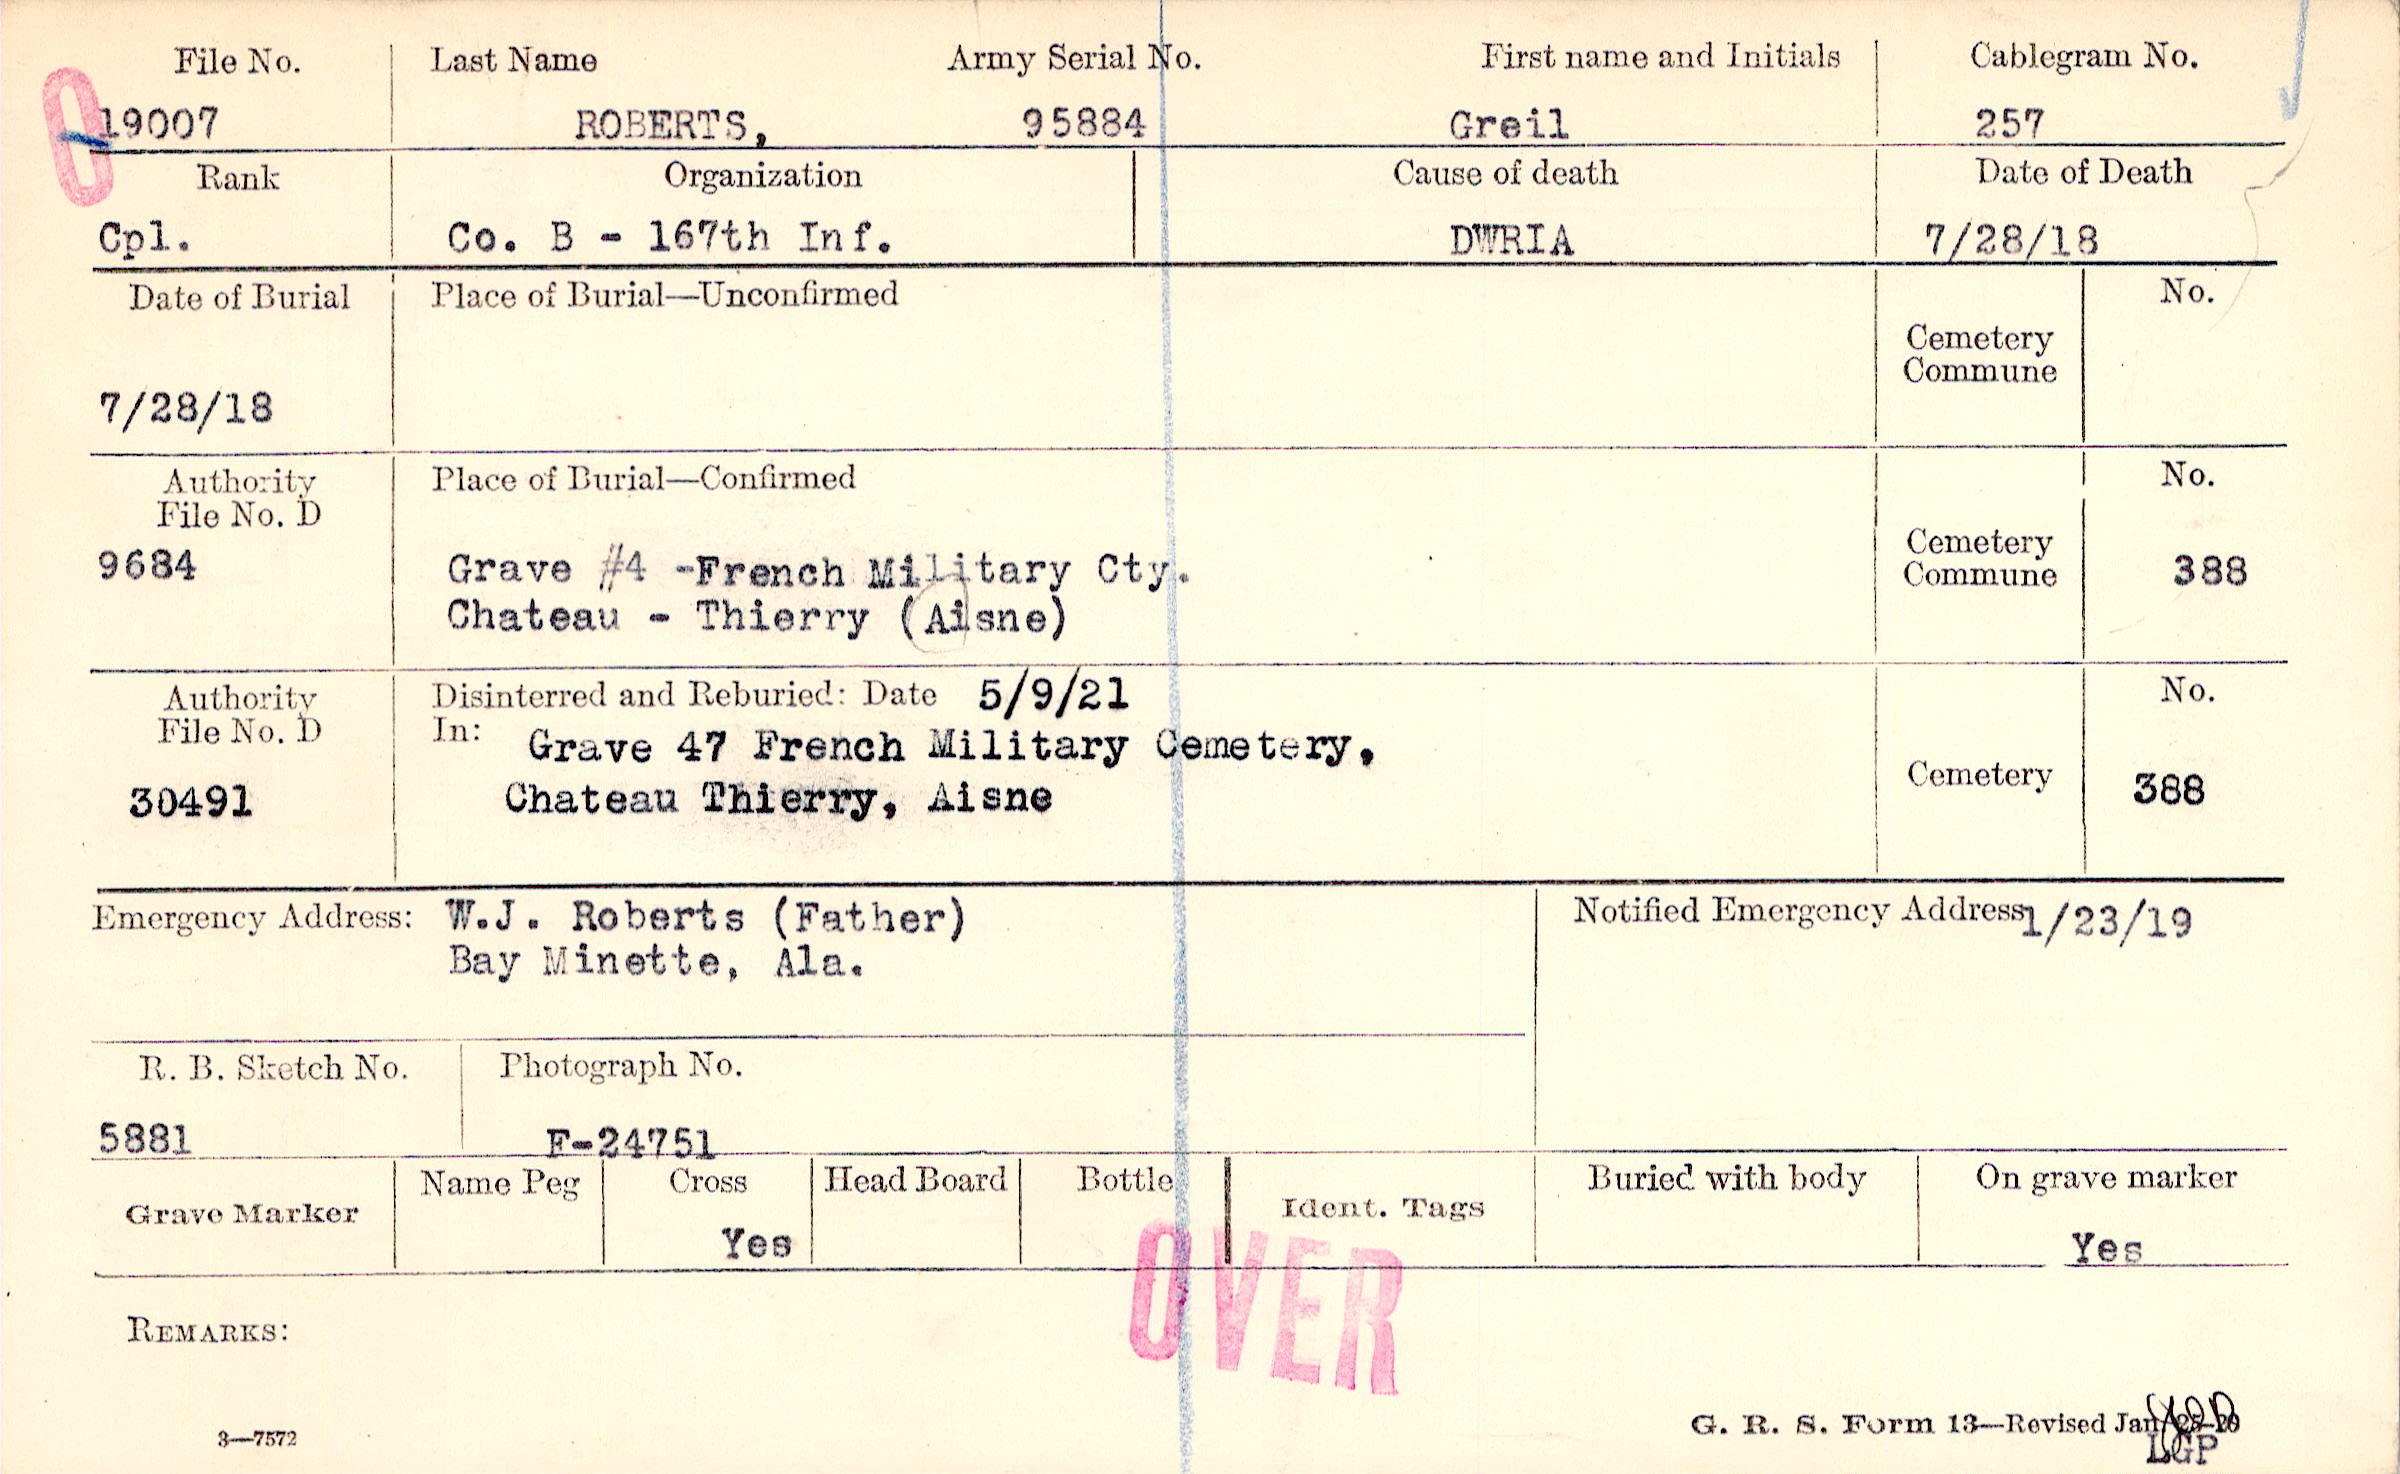 File No. Last Name Army Serial No. First name and Initials Cablegram No.
O
19007 ROBERTS, 95884 Greil 257
Rank Organization Cause of death Date of Death
Cpl. Co. B - 167th Inf. DWRIA 7/28/18
Date of Burial Place of Burial—Unconfirmed No.
Cemetery
Commune
7/28/18
Authority Place of Burial—Confirmed No.
File No. D
9684 Grave #4 -French Military Cty. Cemetery
Commune 388
Chateau - Thierry (Aisne)
Authority Disinterred and Reburied: Date 5/9/21 No.
File No. D In: Grave 47 French Military Cemetery,
30491 Chateau Thierry, Aisne Cemetery 388
Emergency Address: W.J. Roberts (Father) Notified Emergency Address 1/23/19
Bay Minette, Ala.
R. B. Sketch No. Photograph No.
5881 F-24751
Grave Marker Name Peg Cross Head Board Bottle Ident. Tags Buried with body On grave marker
Yes Yes
OVER
REMARKS:
3—7572 G. R. S. Form 13—Revised Jan
LGP